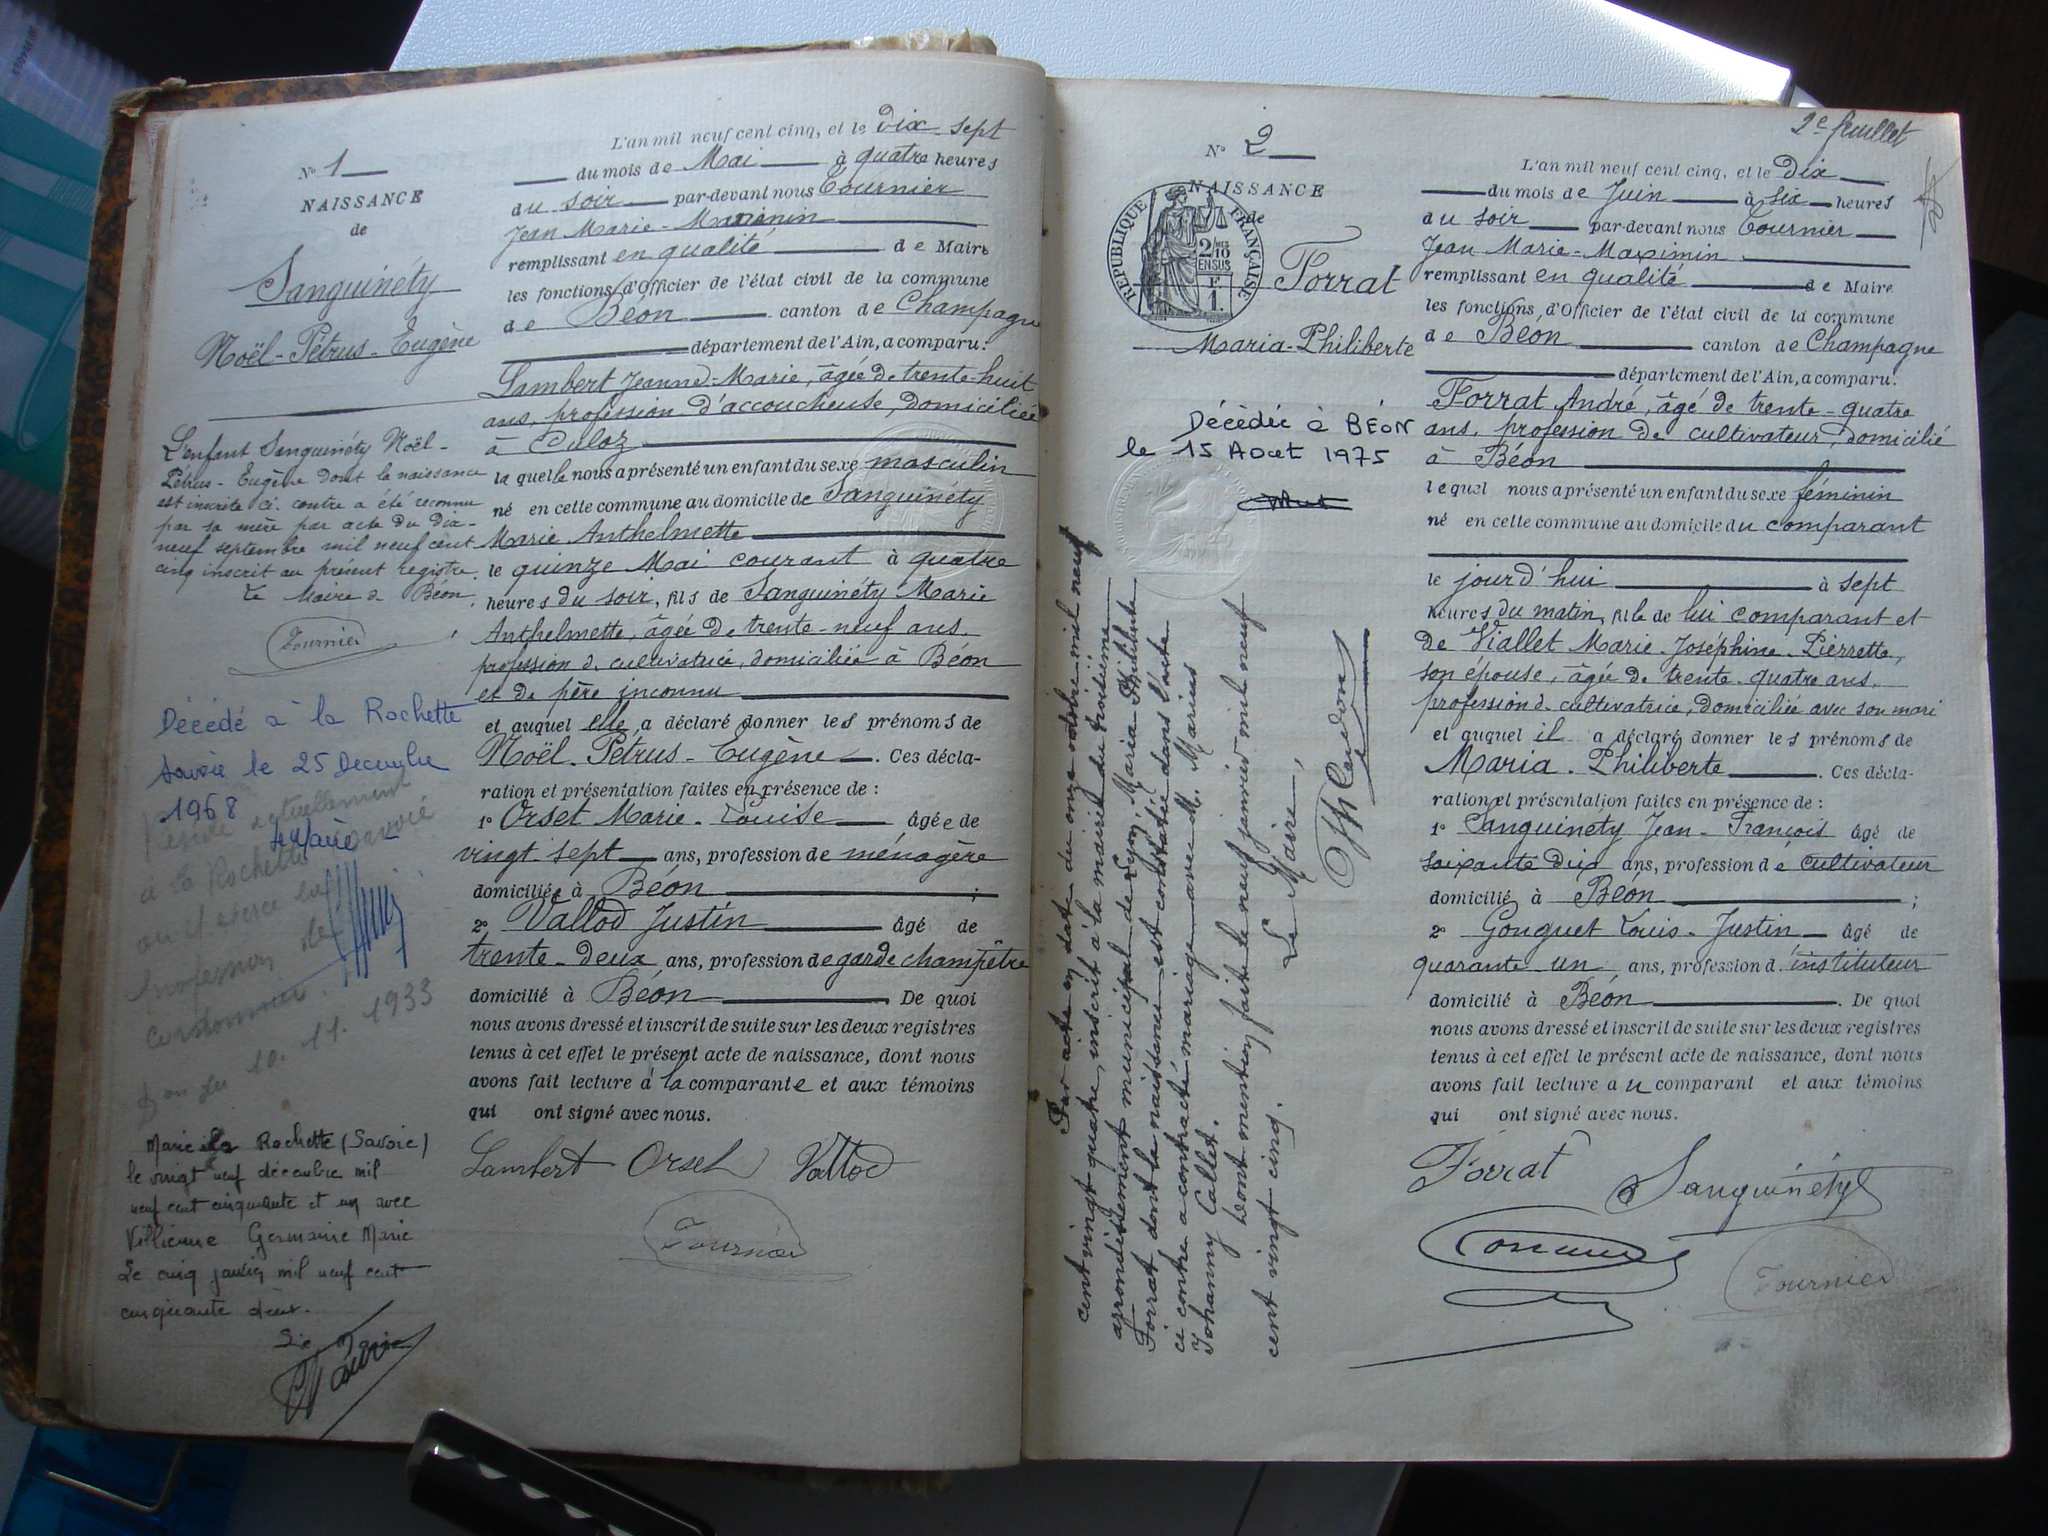 N° 1
NAISSANCE
de
Sanguinéty
Noël-Pétrus-Eugène
L'enfant Sanguinéty Noël-
Pétrus-Eugène dont la naissance
est inscrite ci-contre a été reconnu
par sa mère par acte du dix-
neuf septembre mil neuf cent
cinq inscrit au présent registre.
Le Maire de Béon,
Tournier
Décédé à la Rochette
Savoie le 25 Decembre
1968
Le Maire
Réside actuellement
à la Rochette Savoie
où il exerce la
profession de
cordonnier.
Béon le 10. 11. 1933
Marié à la Rochette (Savoie)
le vingt neuf décembre mil
neuf cent cinquante et un avec
Germaine Marie
Le cinq janvier mil neuf cent
cinquante deux.
Le Maire
L'an mil neuf cent cinq, et le dix-sept
du mois de Mai à quatre heures
du soir par-devant nous Tournier
Jean Marie-Maximin
remplissant en qualité de Maire
les fonctions d'Officier de l'état civil de la commune
de Béon canton de Champagne
département de l'Ain, a comparu:
Lambert Jeanne-Marie, âgée de trente-huit
ans, profession d'accoucheuse, domiciliée
à Culoz
laquelle nous a présenté un enfant du sexe masculin
né en cette commune au domicile de Sanguinéty
Marie Anthelmette
le quinze Mai courant à quatre
heures du soir, fils de Sanguinéty Marie
Anthelmette, âgée de trente-neuf ans,
profession d. cultivatrice, domiciliée à Béon
et de père inconnu
et auquel elle a déclaré donner les prénoms de
Noël-Pétrus-Eugène. Ces décla-
ration et présentation faites en présence de :
1° Orset Marie-Louise âgée de
vingt sept ans, profession de ménagère
domiciliée à Béon ;
2° Vallod Justin âgé de
trente-deux ans, profession de garde champêtre
domicilié à Béon. De quoi
nous avons dressé et inscrit de suite sur les deux registres
tenus à cet effet le présent acte de naissance, dont nous
avons fait lecture à la comparante et aux témoins
qui ont signé avec nous.
Lambert Orset Vallod
Tournier
2e feuillet
N° 2
NAISSANCE
de
RÉPUBLIQUE FRANÇAISE
2/10
EN SUS
F.
1.
Forrat
Maria-Philiberte
Décédée à BÉON
le 15 Aout 1975
Par acte en date du onze octobre mil neuf
cent vingt quatre, inscrit à la mairie du troisième
arrondissement municipal de Lyon, Maria Philiberte
Forrat dont la naissance est constatée dans l'acte
ci contre a contracté mariage avec M. Marius
Johanny Callet.
Dont mention faite le neuf janvier mil neuf
cent vingt cinq.
Le Maire,
L'an mil neuf cent cinq, et le Dix
du mois de Juin à six heures
du soir par-devant nous Tournier
Jean Marie-Maximin
remplissant en qualité de Maire
les fonctions d'Officier de l'état civil de la commune
de Béon canton de Champagne
département de l'Ain, a comparu:
Forrat André, âgé de trente-quatre
ans, profession de cultivateur, domicilié
à Béon
lequel nous a présenté un enfant du sexe féminin
né en cette commune au domicile du comparant
le jourd'hui à sept
heures du matin, fille de lui comparant et
de Viallet Marie-Joséphine-Pierrette,
son épouse, âgée de trente-quatre ans,
profession d. cultivatrice, domiciliée avec son mari
et auquel il a déclaré donner les prénoms de
Maria-Philiberte. Ces décla-
ration et présentation faites en présence de :
1° Sanguinéty Jean-François âgé de
soixante dix ans, profession de cultivateur
domicilié à Béon ;
2° Gouguet Louis-Justin âgé de
quarante-un ans, profession d. instituteur
domicilié à Béon. De quoi
nous avons dressé et inscrit de suite sur les deux registres
tenus à cet effet le présent acte de naissance, dont nous
avons fait lecture au comparant et aux témoins
qui ont signé avec nous.
Forrat Sanguinéty
Tournier